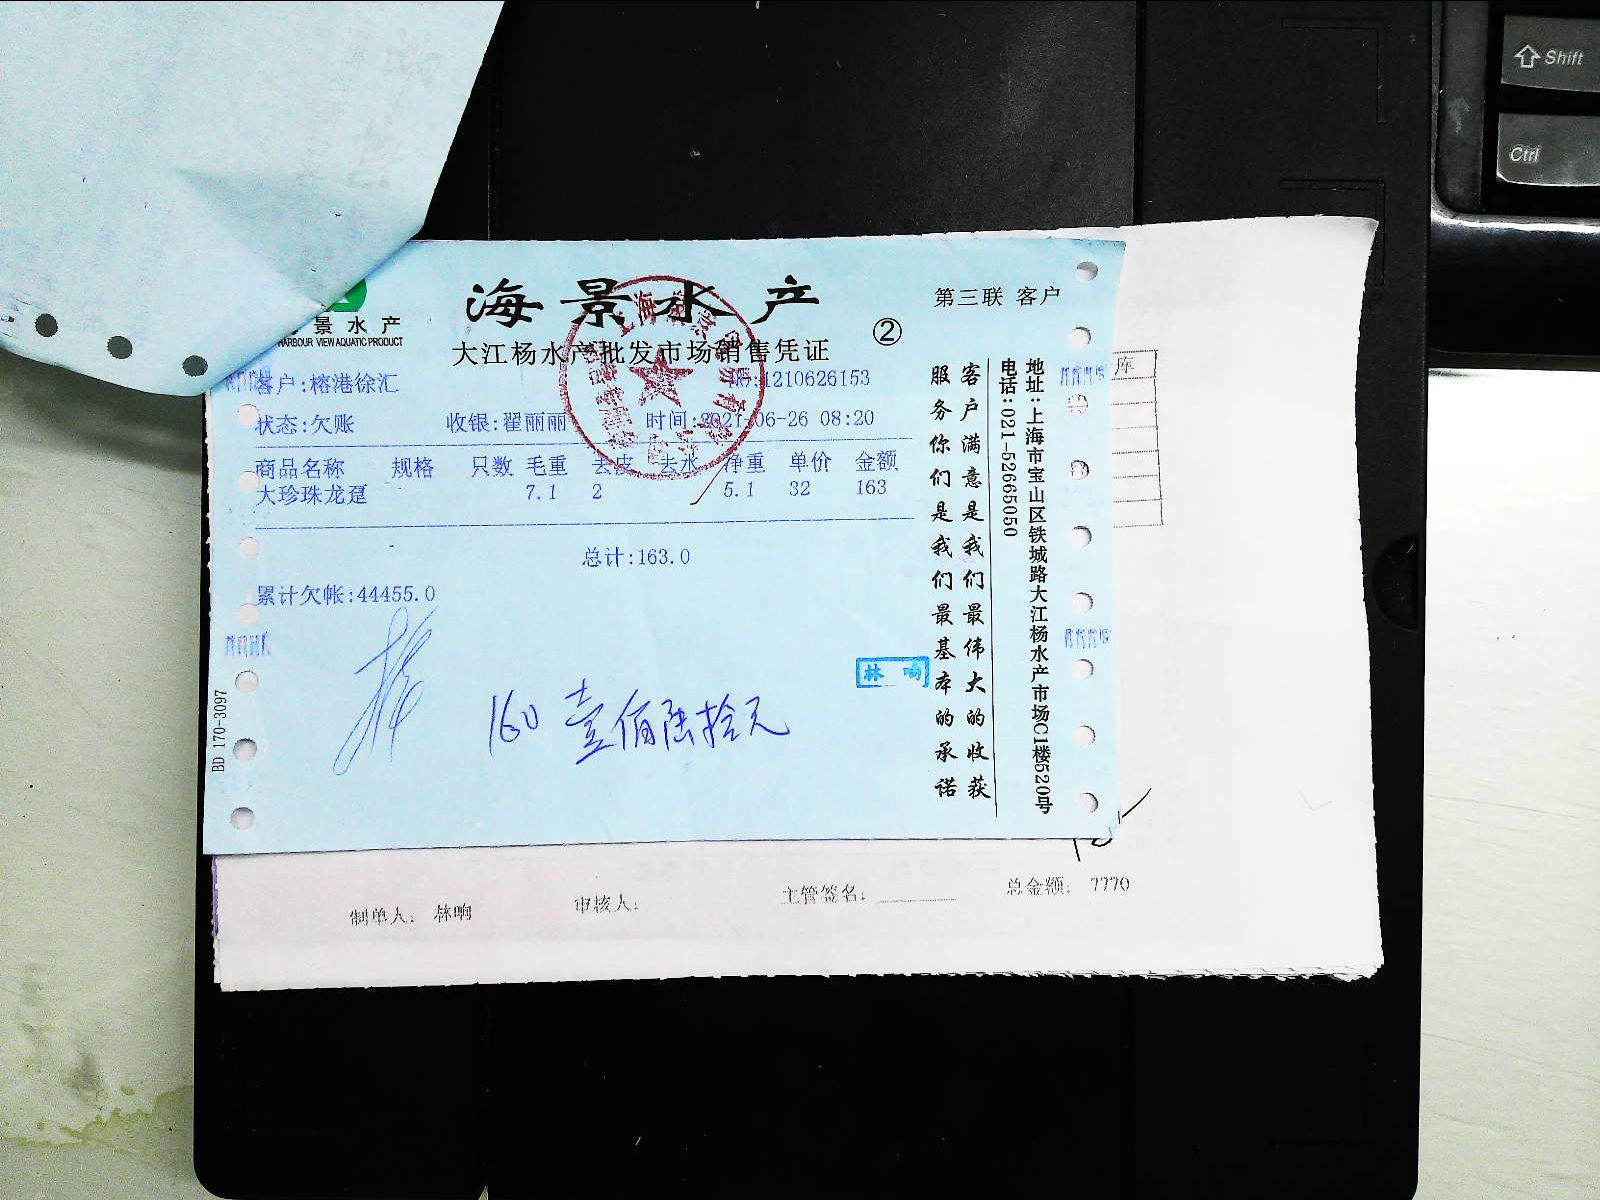 Shift
Ctrl
海景水产
第三联 客户
景水产
HARBOUR VIEW AQUATIC PRODUCT
大江杨水产批发市场销售凭证
②
客户:榕港徐汇
1210626153
状态:欠账 收银:翟丽丽 时间:2021-06-26 08:20
商品名称 规格 只数 毛重 去皮 去水 净重 单价 金额
大珍珠龙趸 7.1 2 5.1 32 163
总计:163.0
累计欠帐:44455.0
160 壹佰陆拾元
林响
客户满意是我们最伟大的收获
服务你们是我们最基本的承诺
地址:上海市宝山区铁城路大江杨水产市场C1楼520号
电话:021-52665050
BD 170-3097
库
制单人: 林响 审核人: 主管签名: 总金额: 7770